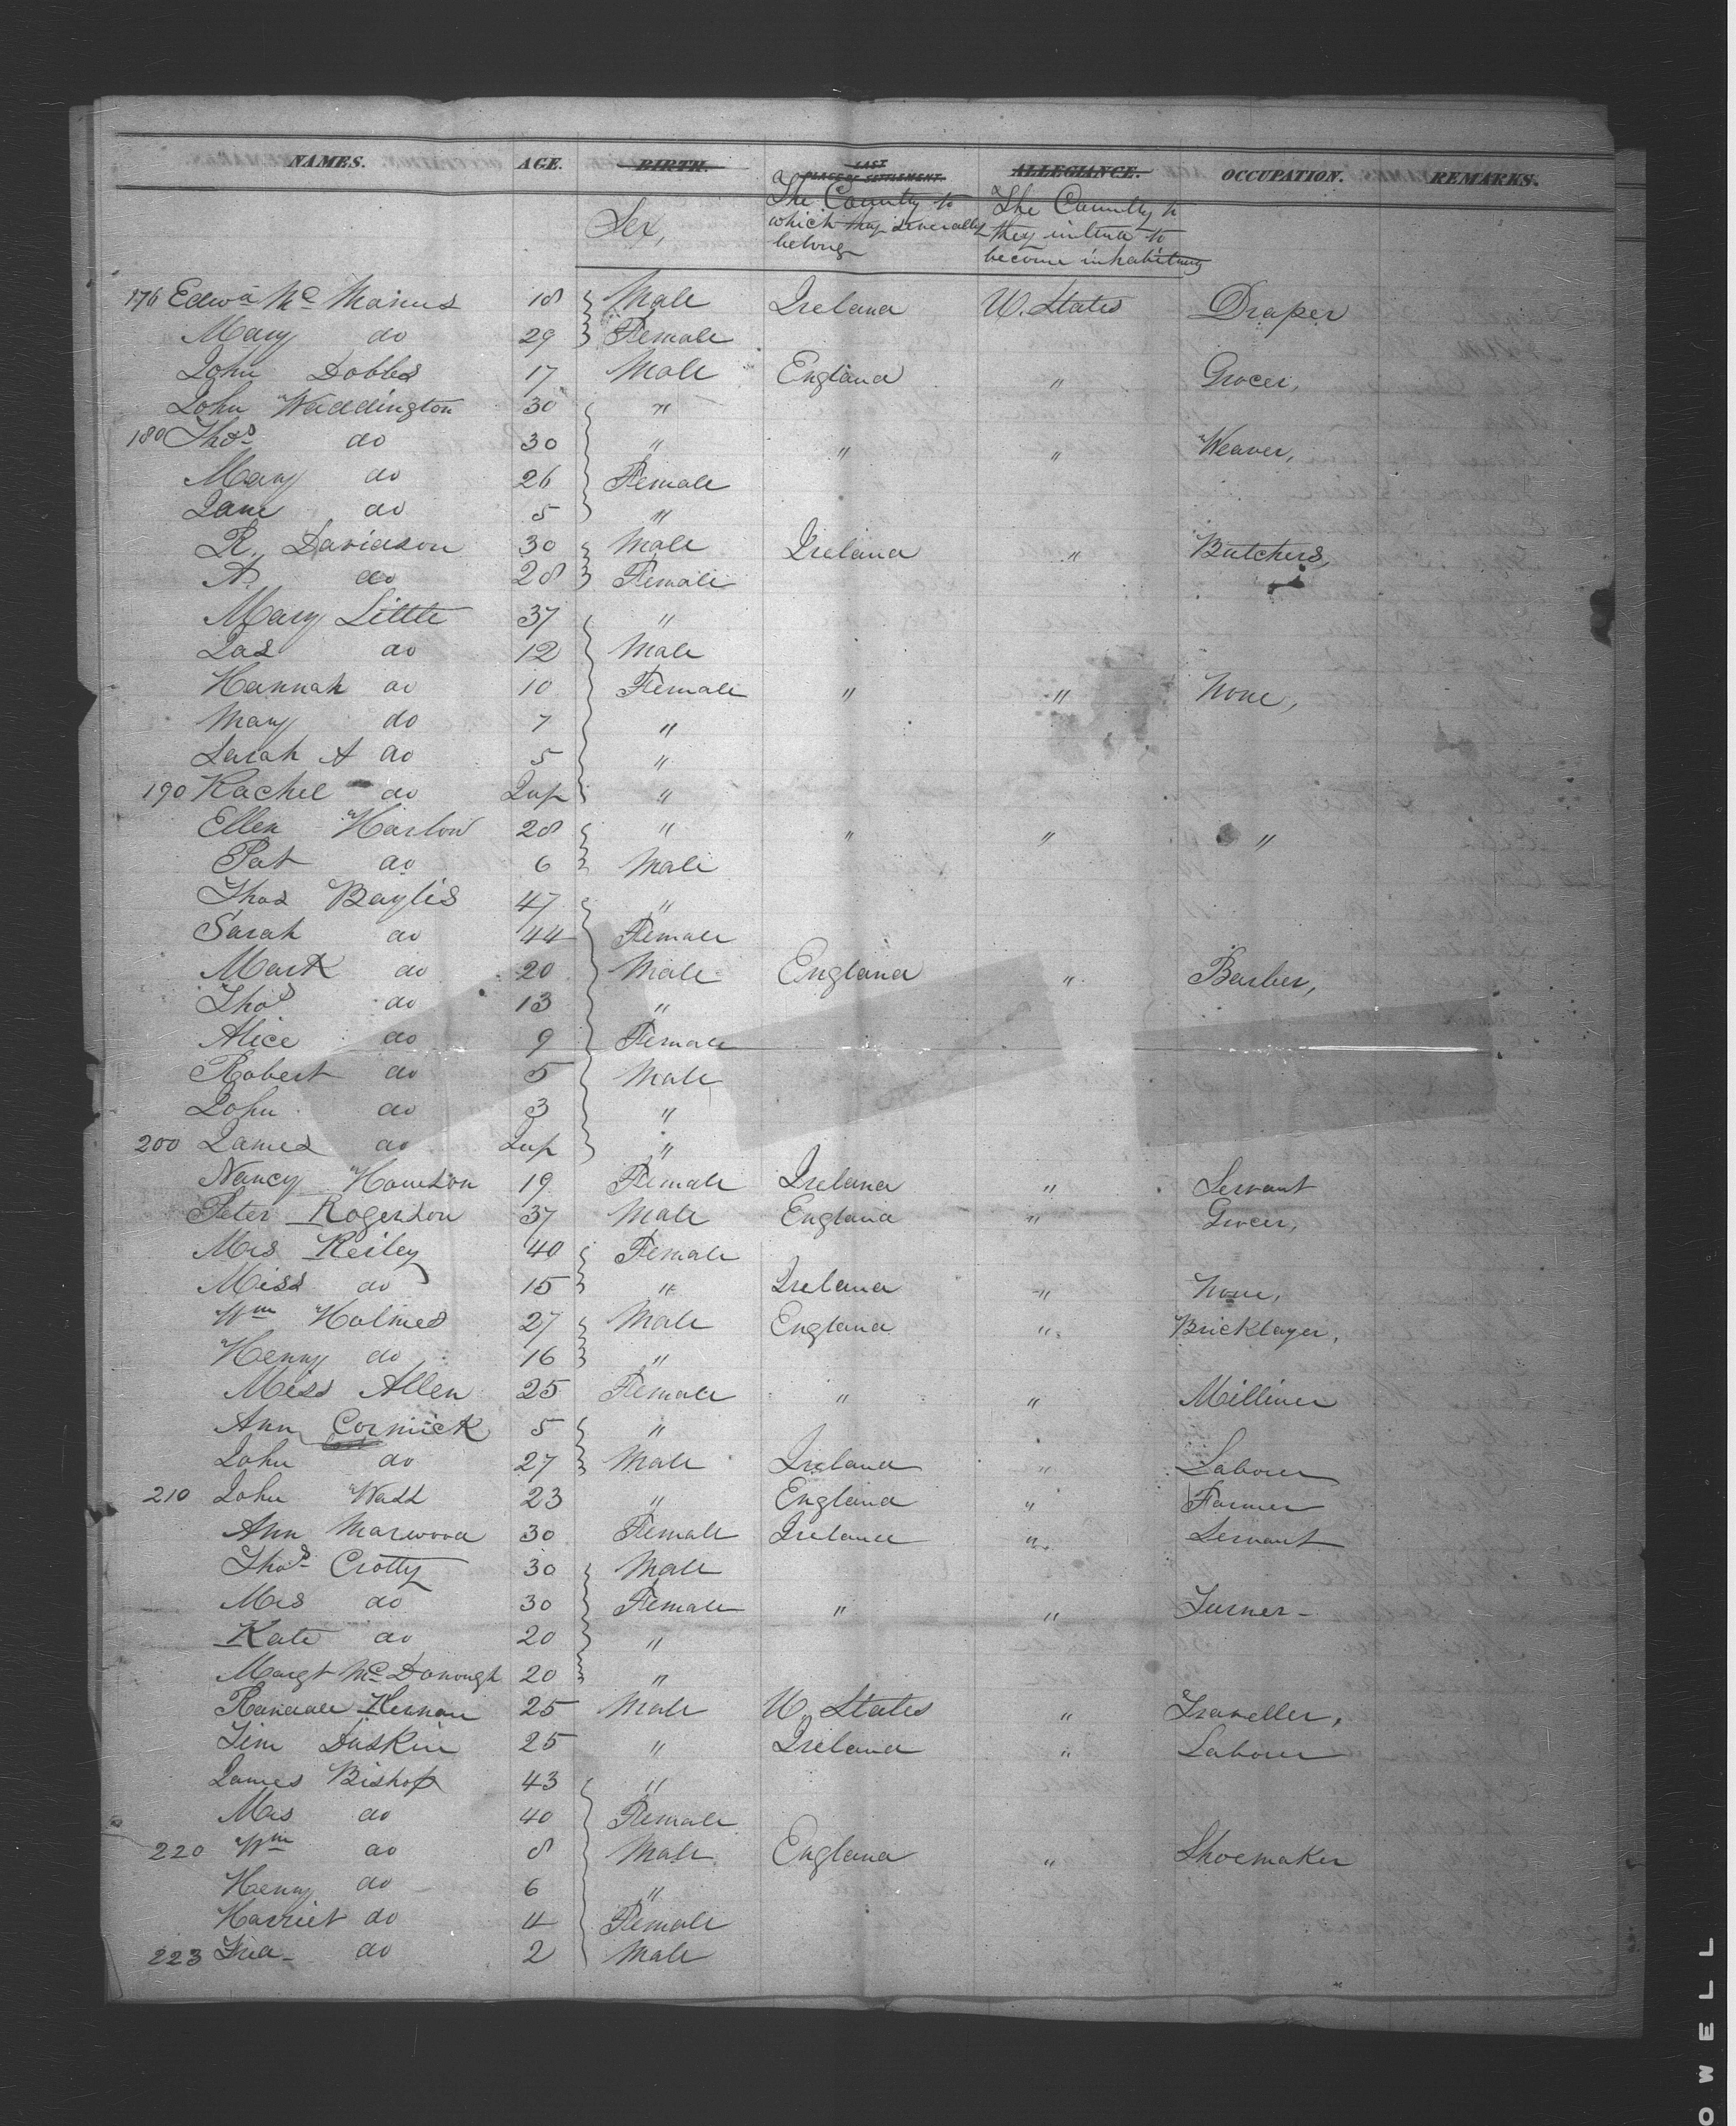 NAMES. AGE. BIRTH. LAST PLACE OF SETTLEMENT. ALLEGIANCE. OCCUPATION. REMARKS.
Sex, The Country to which they severally belong The Country to they intend to become inhabitants
176 Edwd Mc Manus 18 Male Ireland U. States Draper
Mary do 29 Female
John Dobbs 17 Male England " Grocer,
John Waddington 30 "
180 Thos do 30 " " " Weaver,
Mary do 26 Female
Jane do 5 "
R. Davidson 30 Male Ireland " Butchers,
A. do 28 Female
Mary Little 37 "
Jas do 12 Male
Hannah do 10 Female " " None,
Mary do 7 "
Sarah A do 5 "
190 Rachel do Inf "
Ellen Harlow 28 " " " "
Pat do 6 Male
Thos Baylis 47 "
Sarah do 44 Female
Mark do 20 Male England " Barber,
Thos do 13 "
Alice do 9 Female
Robert do 5 Male
John do 3 "
200 James do Inf "
Nancy Howson 19 Female Ireland " Servant
Peter Rogerson 37 Male England " Grocer,
Mrs Reiley 40 Female
Miss do 15 " Ireland " None,
Wm Holmes 27 Male England " Bricklayer,
Henry do 16 "
Miss Allen 25 Female " " Milliner
Ann Cormick 5 "
John do 27 Male Ireland " Laborer
210 John Wall 23 " England " Farmer
Ann Marwood 30 Female Ireland " Servant
Thos Crotty 30 Male
Mrs do 30 Female " " Turner -
Kate do 20 "
Margt Mc Donough 20 "
Randall 25 Male U. States " Traveller,
Tim Duskin 25 " Ireland " Laborer
James Bishop 43 "
Mrs do 40 Female
220 Wm do 8 Male England " Shoemaker
Henry do 6 "
Harriet do 4 Female
223 Fred do 2 Male
OWELL